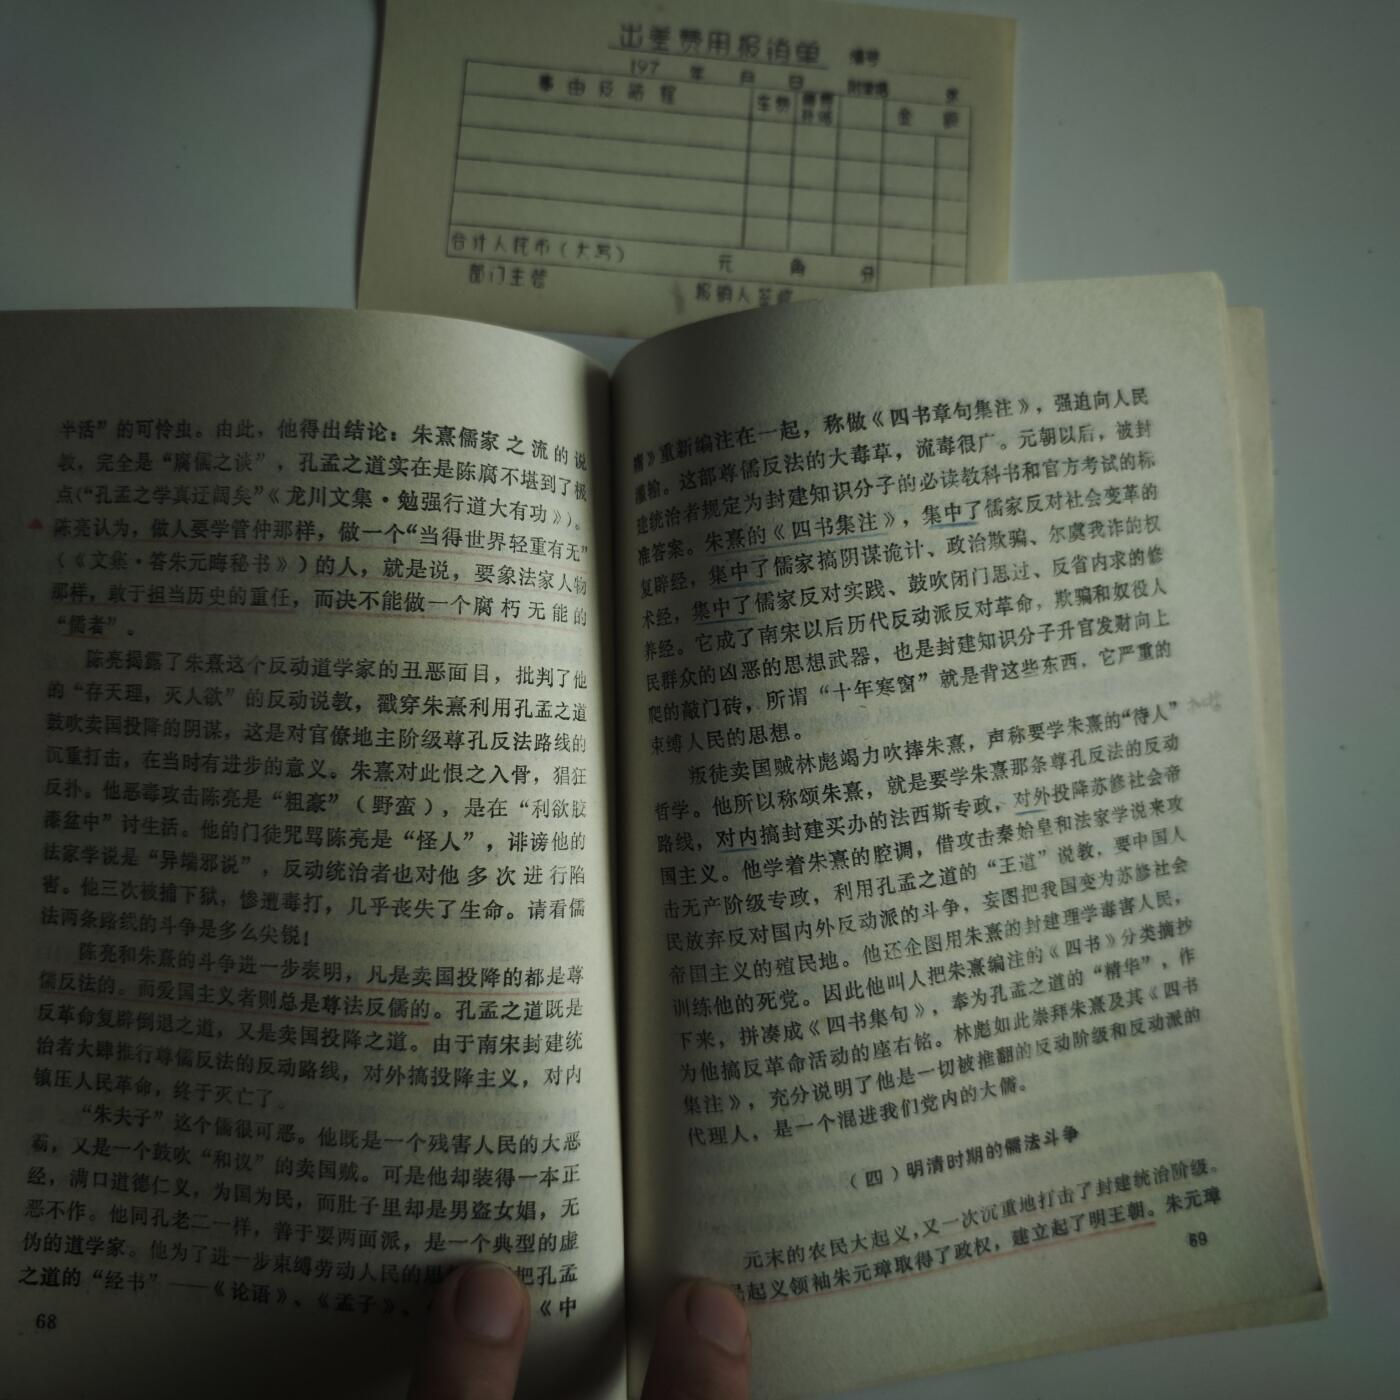 出差费用报销单 编号
197 年 月 日 附单据 张
事由及路程 车费 金额
合计人民币(大写) 元 角 分
部门主管 报销人签
半活”的可怜虫。由此，他得出结论：朱熹儒家之流的说
教，完全是“腐儒之谈”，孔孟之道实在是陈腐不堪到了极
点(“孔孟之学真迂阔矣”《龙川文集·勉强行道大有功》)。
陈亮认为，做人要学管仲那样，做一个“当得世界轻重有无”
(《文集·答朱元晦秘书》)的人，就是说，要象法家人物
那样，敢于担当历史的重任，而决不能做一个腐朽无能的
“儒者”。
陈亮揭露了朱熹这个反动道学家的丑恶面目，批判了他
的“存天理，灭人欲”的反动说教，戳穿朱熹利用孔孟之道
鼓吹卖国投降的阴谋，这是对官僚地主阶级尊孔反法路线的
沉重打击，在当时有进步的意义。朱熹对此恨之入骨，猖狂
反扑。他恶毒攻击陈亮是“粗豪”(野蛮)，是在“利欲胶
漆盆中”讨生活。他的门徒咒骂陈亮是“怪人”，诽谤他的
法家学说是“异端邪说”，反动统治者也对他多次进行陷
害。他三次被捕下狱，惨遭毒打，几乎丧失了生命。请看儒
法两条路线的斗争是多么尖锐！
陈亮和朱熹的斗争进一步表明，凡是卖国投降的都是尊
儒反法的。而爱国主义者则总是尊法反儒的。孔孟之道既是
反革命复辟倒退之道，又是卖国投降之道。由于南宋封建统
治者大肆推行尊儒反法的反动路线，对外搞投降主义，对内
镇压人民革命，终于灭亡了。
“朱夫子”这个儒很可恶。他既是一个残害人民的大恶
霸，又是一个鼓吹“和议”的卖国贼。可是他却装得一本正
经，满口道德仁义，为国为民，而肚子里却是男盗女娼，无
恶不作。他同孔老二一样，善于耍两面派，是一个典型的虚
伪的道学家。他为了进一步束缚劳动人民的思 把孔孟
之道的“经书”——《论语》、《孟子》、 《中
68
庸》重新编注在一起，称做《四书章句集注》，强迫向人民
灌输。这部尊儒反法的大毒草，流毒很广。元朝以后，被封
建统治者规定为封建知识分子的必读教科书和官方考试的标
准答案。朱熹的《四书集注》，集中了儒家反对社会变革的
复辟经，集中了儒家搞阴谋诡计、政治欺骗、尔虞我诈的权
术经，集中了儒家反对实践、鼓吹闭门思过、反省内求的修
养经。它成了南宋以后历代反动派反对革命，欺骗和奴役人
民群众的凶恶的思想武器，也是封建知识分子升官发财向上
爬的敲门砖，所谓“十年寒窗”就是背这些东西，它严重的
束缚人民的思想。
叛徒卖国贼林彪竭力吹捧朱熹，声称要学朱熹的“待人”
哲学。他所以称颂朱熹，就是要学朱熹那条尊孔反法的反动
路线，对内搞封建买办的法西斯专政，对外投降苏修社会帝
国主义。他学着朱熹的腔调，借攻击秦始皇和法家学说来攻
击无产阶级专政，利用孔孟之道的“王道”说教，要中国人
民放弃反对国内外反动派的斗争，妄图把我国变为苏修社会
帝国主义的殖民地。他还企图用朱熹的封建理学毒害人民，
训练他的死党。因此他叫人把朱熹编注的《四书》分类摘抄
下来，拼凑成《四书集句》，奉为孔孟之道的“精华”，作
为他搞反革命活动的座右铭。林彪如此崇拜朱熹及其《四书
集注》，充分说明了他是一切被推翻的反动阶级和反动派的
代理人，是一个混进我们党内的大儒。
(四)明清时期的儒法斗争
元末的农民大起义，又一次沉重地打击了封建统治阶级。
起义领袖朱元璋取得了政权，建立起了明王朝。朱元璋
69